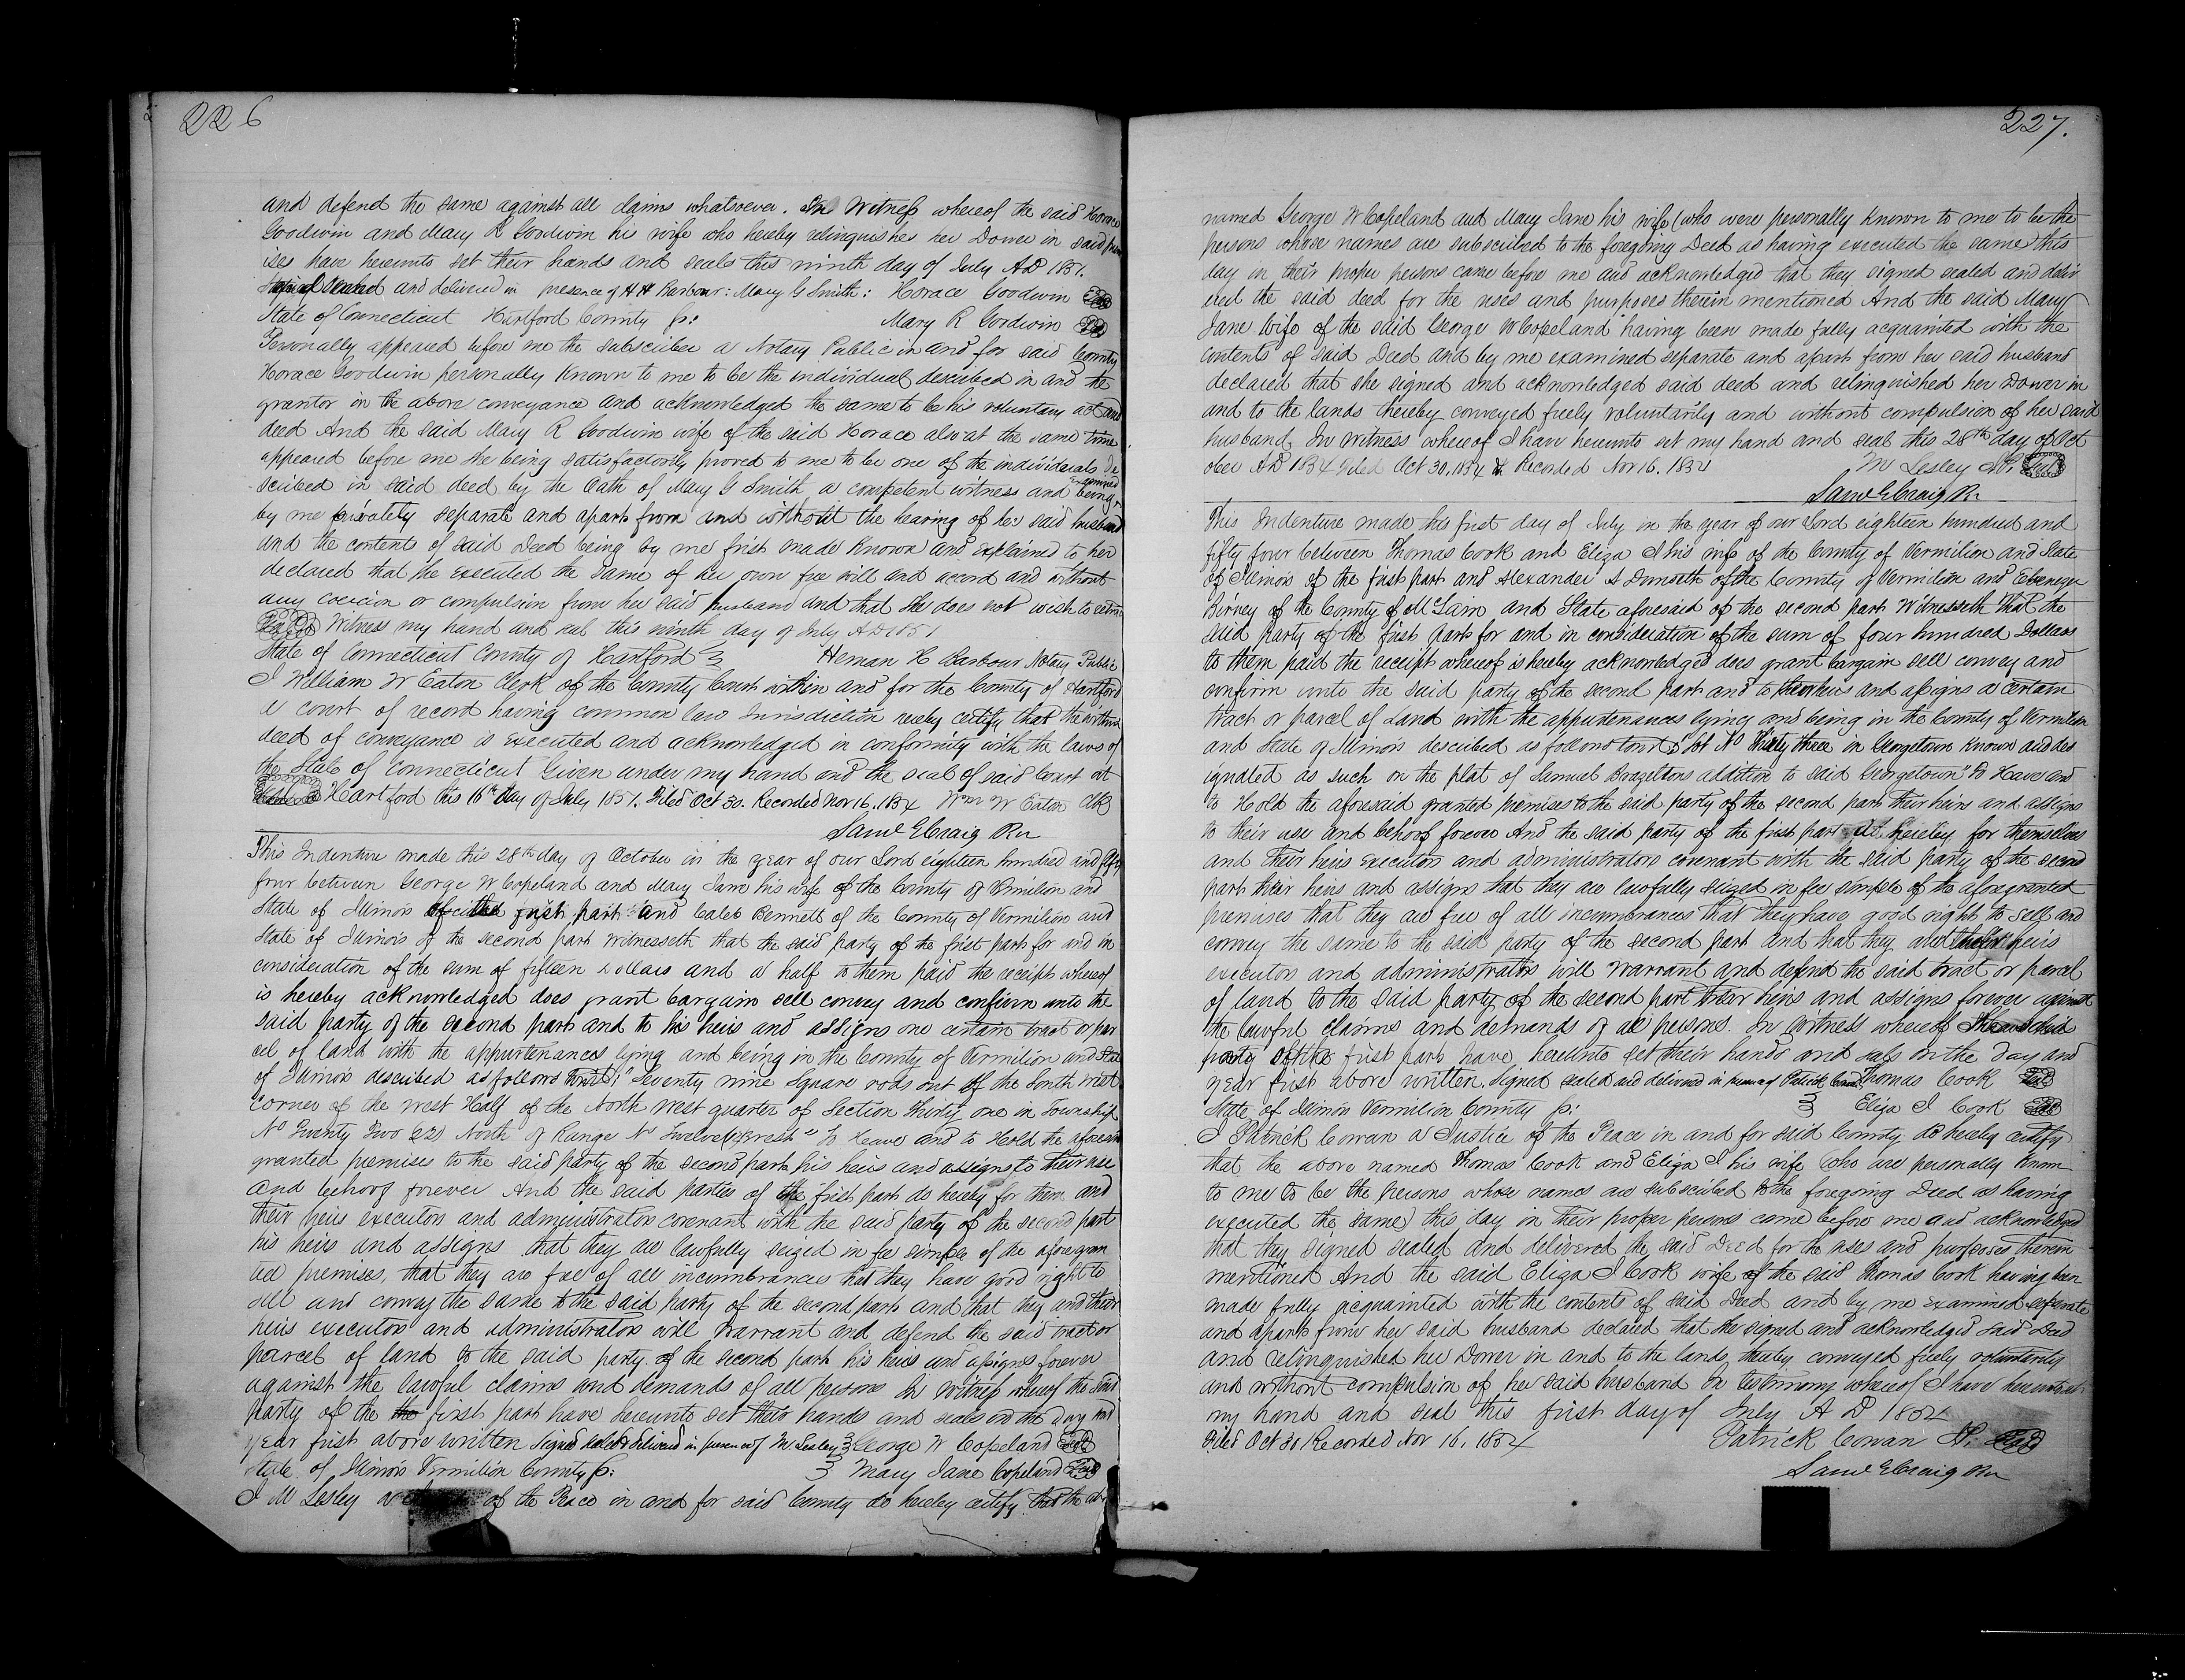 226
and defend the same against all claims whatsoever. In Witness whereof the said Horace
Goodwin and Mary R Goodwin his wife who hereby relinquishes her Dower in said prem
ises have hereunto set their hands and seals this ninth day of July AD 1851.
Signed Sealed and delivered in presence of H H Barbour: Mary G Smith: Horace Goodwin Seal
State of Connecticut Hartford County ss: Mary R Goodwin Seal
Personally appeared before me the subscriber a Notary Public in and for said County
Horace Goodwin personally known to me to be the individual described in and the
grantor in the above conveyance and acknowledged the same to be his voluntary act and
deed And the said Mary R Goodwin wife of the said Horace also at the same time
appeared before me she being satisfactorily proved to me to be one of the individuals de
scribed in said deed by the Oath of Mary G Smith a competent witness and being examined
by me privately separate and apart from and without the hearing of her said husband
and the contents of said Deed being by me first made known and explained to her
declared that she executed the same of her own free will and accord and without
any coercion or compulsion from her said husband and that she does not wish to retract
Witness my hand and seal this ninth day of July AD 1851
State of Connecticut County of Hartford Heman H Barbour Notary Public
I William W Eaton Clerk of the County Court within and for the County of Hartford
a court of record having common law Jurisdiction hereby certify that the within
deed of conveyance is executed and acknowledged in conformity with the laws of
the State of Connecticut Given under my hand and the seal of said Court at
Hartford this 16th day of July 1851. Filed Oct 30. Recorded Nov 16, 1854 Wm W Eaton Clk
Saml E Craig Rr
This Indenture made this 28th day of October in the year of our Lord eighteen hundred and fifty
four between George W Copeland and Mary Jane his wife of the County of Vermilion and
State of Illinois of the first part and Caleb Bennett of the County of Vermilion and
State of Illinois of the second part witnesseth that the said party of the first part for and in
consideration of the sum of fifteen Dollars and a half to them paid the receipt whereof
is hereby acknowledged does grant bargain sell convey and confirm unto the
said party of the second part and to his heirs and assigns one certain tract or par
cel of land with the appurtenances lying and being in the County of Vermilion and State
of Illinois described as follows towit; "Seventy nine Square rods out of the South West
Corner of the West Half of the North West quarter of Section Thirty one in Township
No Twenty Two (22) North of Range No Twelve West" To Have and to Hold the aforesaid
granted premises to the said party of the second part his heirs and assigns to their use
and behoof forever And the said parties of the first part do hereby for them and
their heirs executors and administrators covenant with the said party of the second part
his heirs and assigns that they are lawfully seized in fee simple of the aforegran
ted premises, that they are free of all incumbrances that they have good right to
sell and convey the same to the said party of the second part and that they and their
heirs executors and administrators will Warrant and defend the said tract or
parcel of land to the said party of the second part his heirs and assigns forever
against the lawful claims and demands of all persons In Witness whereof the said
party of the the first part have hereunto set their hands and seals on the day and
year first above written Signed sealed & delivered in presence of M. Lesley George W Copeland Seal
State of Illinois Vermilion County ss: Mary Jane Copeland Seal
I M Lesley a of the Peace in and for said County do hereby certify that the above
227.
named George W Copeland and Mary Jane his wife (who were personally known to me to be the
persons whose names are subscribed to the foregoing Deed as having executed the same) this
day in their proper persons came before me and acknowledged that they signed sealed and deliv
ered the said deed for the uses and purposes therein mentioned And the said Mary
Jane Wife of the said George W Copeland having been made fully acquainted with the
contents of said Deed and by me examined separate and apart from her said husband
declared that she signed and acknowledged said deed and relinquished her Dower in
and to the lands thereby conveyed freely voluntarily and without compulsion of her said
husband. In witness whereof I have hereunto set my hand and seal this 28th day of Oct
ober AD 1854 Filed Oct 30. 1854 & Recorded Nov 16. 1854 M Lesley J.P. Seal
Saml E Craig Rr
This Indenture made this first day of July in the year of our Lord eighteen hundred and
fifty four between Thomas Cook and Eliza J his wife of the County of Vermilion and State
of Illinois of the first part and Alexander A Dunseth of the County of Vermilion and Ebenezer
Birney of the County of McLain and State aforesaid of the second part Witnesseth that the
said party of the first part for and in consideration of the sum of four hundred Dollars
to them paid the receipt whereof is hereby acknowledged does grant bargain sell convey and
confirm unto the said party of the second part and to their heirs and assigns a certain
tract or parcel of Land with the appurtenances lying and being in the County of Vermilion
and State of Illinois described as follows towit; "Lot No Thirty three in Georgetown known and des
ignated as such on the plat of Samuel Brazeltons addition to said Georgetown" To Have and
to Hold the aforesaid granted premises to the said party of the second part their heirs and assigns
to their use and behoof forever And the said party of the first part do hereby for themselves
and their heirs executors and administrators covenant with the said party of the second
part their heirs and assigns that they are lawfully seized in fee simple of the aforegranted
premises that they are free of all incumbrances that they have good right to sell and
convey the same to the said party of the second part and that they and their heirs
executors and administrators will Warrant and defend the said tract or parcel
of land to the said party of the second part their heirs and assigns forever against
the lawful claims and demands of all persons. In Witness whereof the said
party of the first part have hereunto set their hands and seals on the day and
year first above written. Signed sealed and delivered in presence of Patrick Cowan Thomas Cook Seal
State of Illinois Vermilion County ss: Eliza J Cook Seal
I Patrick Cowan a Justice of the Peace in and for said County do hereby certify
that the above named Thomas Cook and Eliza J his wife (who are personally known
to me to be the persons whose names are subscribed to the foregoing Deed as having
executed the same) this day in their proper persons came before me and acknowledged
that they signed sealed and delivered the said Deed for the uses and purposes therein
mentioned And the said Eliza J Cook wife of the said Thomas Cook having been
made fully acquainted with the contents of said Deed and by me examined seperate
and apart from her said husband declared that she signed and acknowledged said Deed
and relinquished her Dower in and to the lands thereby conveyed freely voluntarily
and without compulsion of her said husband In testimony whereof I have hereunto set
my hand and seal this first day of July A D 1854
Filed Oct 30 Recorded Nov 16, 1854 Patrick Cowan J.P. Seal
Saml E Craig Rr